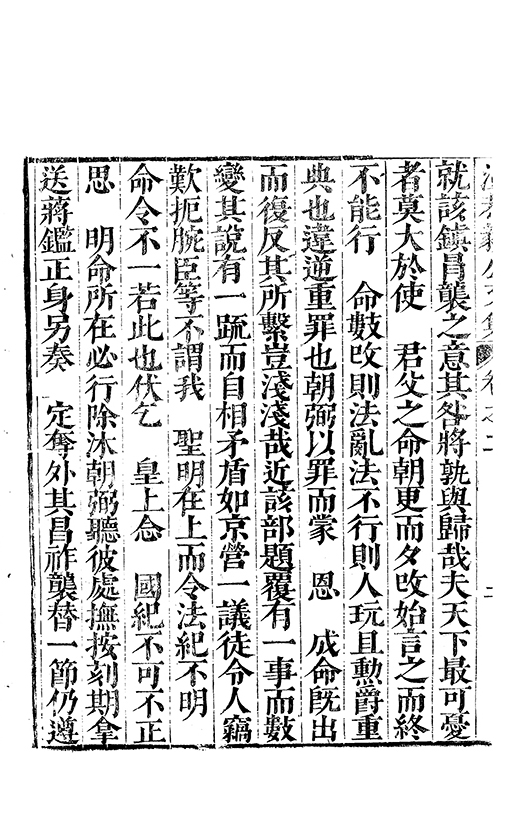 卷之二
就該鎮昌襲之意其咎將孰與歸哉夫天下最可憂
者莫大於使 君父之命朝更而夕改始言之而終
不能行 命數改則法亂法不行則人玩且勲爵重
典也違逆重罪也朝弼以罪而蒙 恩 成命旣出
而復反其所繫豈淺淺哉近該部題覆有一事而數
變其說有一䟽而自相矛盾如京營一議徒令人竊
歎扼腕臣等不謂我 聖明在上而令法紀不明
命令不一若此也伏乞 皇上念 國紀不可不正
思 明命所在必行除沐朝弼聽彼處撫按刻期拿
送蔣鑑正身另奏 定奪外其昌祚襲替一節仍遵